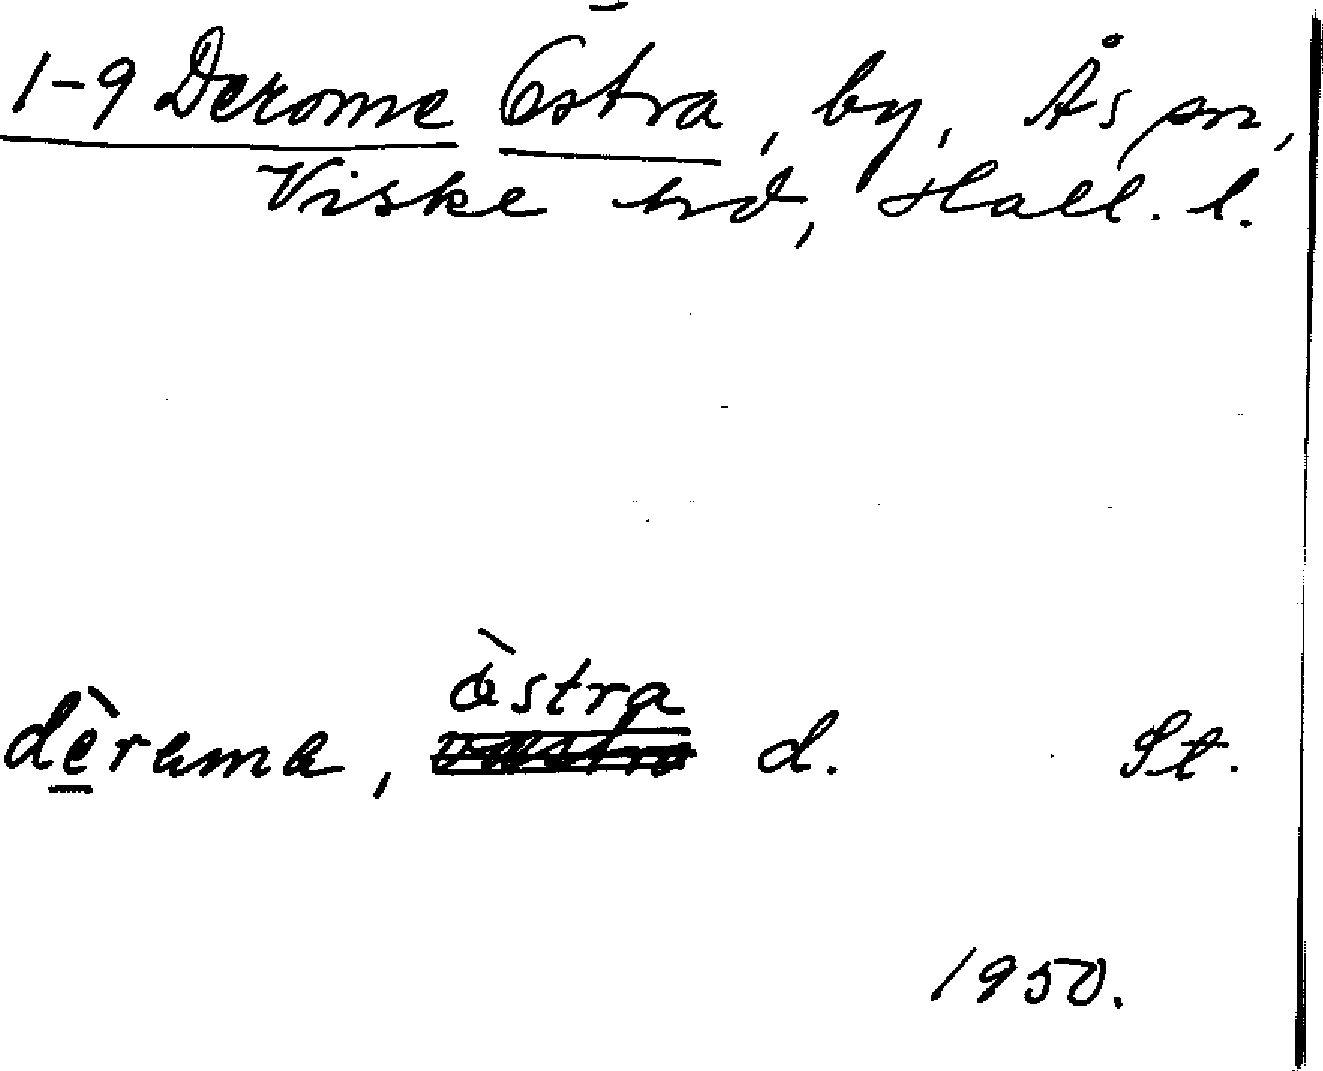 1-9 Derome Östra, by, Ås sn,
Viske hd, Hall. l.
östra
dèrama, d. St.
1950.